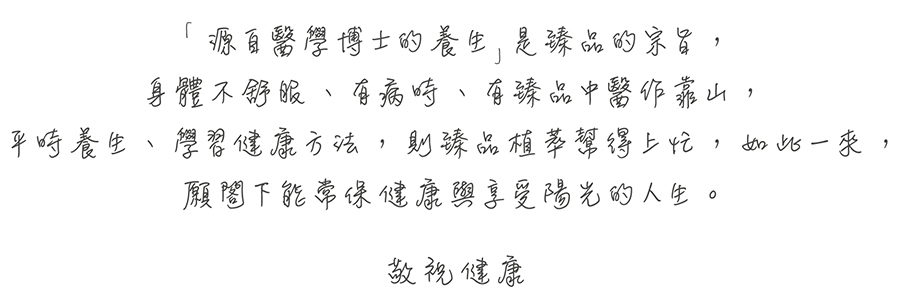 「源自醫學博士的養生」是臻品的宗旨，
身體不舒服、有病時、有臻品中醫作靠山，
平時養生、學習健康方法，則臻品植萃幫得上忙，如此一來，
願閣下能常保健康與享受陽光的人生。
敬祝健康